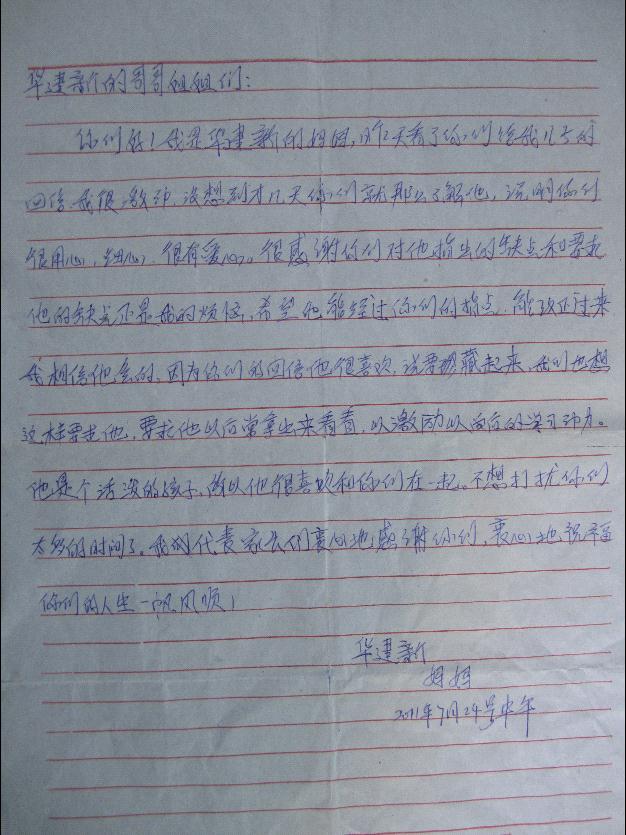 华建新的哥哥姐姐们:
你们好!我是华建新的妈妈,昨天看了你们给我儿子的
回信我很激动,没想到才几天你们就那么了解他,说明你们
很用心,细心,很有爱心。很感谢你们对他指出的缺点和要求
他的缺点正是我的烦恼,希望他能经过你们的指点,能改正过来
我相信他会的,因为你们的回信他很喜欢,说要珍藏起来,我们也想
这样要求他,要求他以后常拿出来看看,以激励以后的学习动力。
他是个活泼的孩子,所以他很喜欢和你们在一起。不想打扰你们
太多的时间了。我们代表家长们衷心地感谢你们,衷心地祝福
你们的人生一帆风顺!
华建新
妈妈
2011年7月24号中午